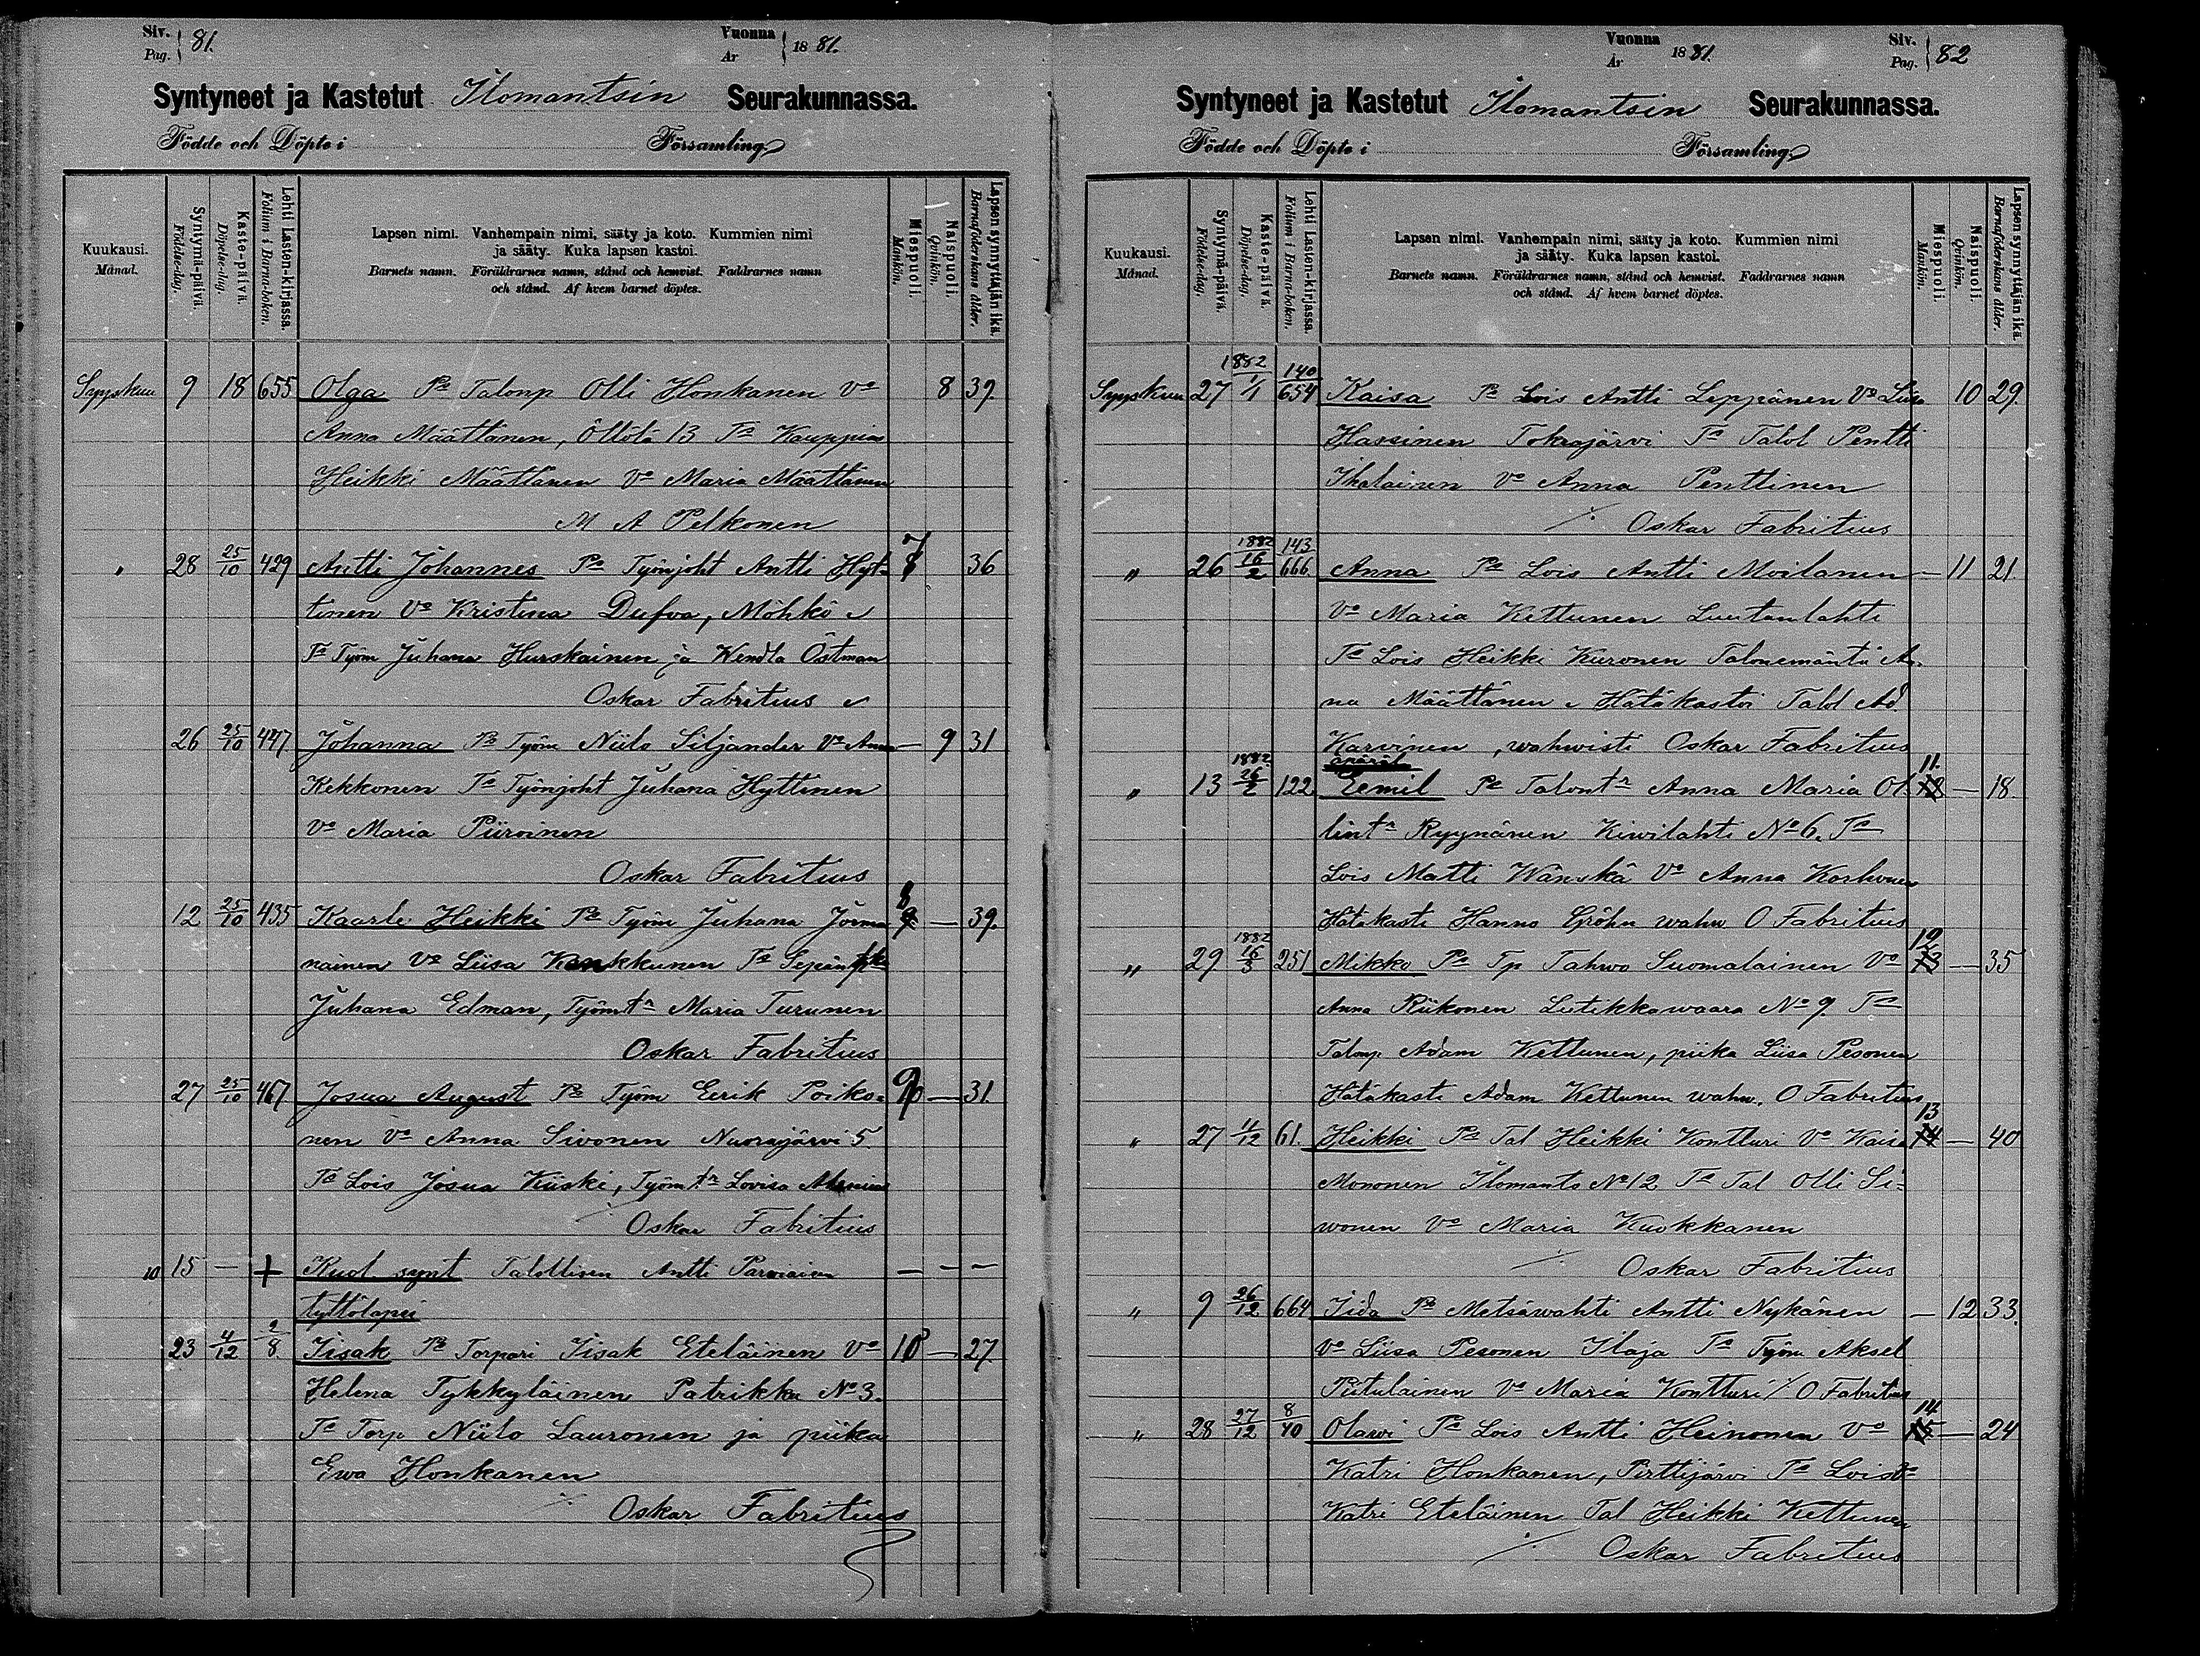 Siv. Pag. 81. Vuonna År 1881.
Syntyneet ja Kastetut Ilomantsin Seurakunnassa.
Födde och Döpte i Församling
Kuukausi. Månad.
Syntymä-päivä. Födelse-dag.
Kaste-päivä. Döpelse-dag.
Lehti Lasten-kirjassa. Folium i Barna-boken.
Lapsen nimi. Vanhempain nimi, sääty ja koto. Kummien nimi
ja sääty. Kuka lapsen kastoi.
Barnets namn. Föräldrarnes namn, stånd och hemvist. Faddrarnes namn
och stånd. Af hvem barnet döptes.
Miespuoli. Mankön.
Naispuoli. Qvinkön.
Lapsen synnyttäjän ikä. Barnaföderskans ålder.
Syyskuu 9 18 655 Olga Pa Talonp Olli Honkanen Vo 8 39.
Anna Määttänen, Öllölä 13 Ta Kauppias
Heikki Määttänen Vo Maria Määttänen
M A Pelkonen
" 28 25/10 429 Antti Johannes Pa Työnjoht Antti Hyt- 7 36
tinen Vo Kristina Dufva, Möhkö
Ta Työm Juhana Hurskainen ja Wendla Östman
Oskar Fabritius
26 25/10 447 Johanna Pa Työm Niilo Siljander Vo Anna — 9 31
Kekkonen Ta Työnjoht Juhana Hyttinen
Vo Maria Piiroinen
Oskar Fabritius
12 25/10 435 Kaarle Heikki Pa Työm Juhana Jorma 8 — 39.
nainen Vo Liisa Ta Sepän
Juhana Edman, Työmtr Maria Turunen
Oskar Fabritius
27 25/10 467 Josua August Pa Työm Eerik Poiko- 9 — 31.
nen Vo Anna Sivonen Nuorajärvi 5.
Ta Lois Josua Kiiski, Työm tr Lovisa
Oskar Fabritius
10 15 — + Kuol synt Talollisen Antti Parviaisen — — —
tyttölapsi
23 4/12 2/8. Iisak Pa Torpari Iisak Eteläinen Vo 10 — 27.
Helena Tykkyläinen Patrikka No 3.
Ta Torp Niilo Lauronen ja piika
Ewa Honkanen
Oskar Fabritius
Vuonna År 1881. Siv. Pag. 82
Syntyneet ja Kastetut Ilomantsin Seurakunnassa.
Födde och Döpte i Församling
Kuukausi. Månad.
Syntymä-päivä. Födelse-dag.
Kaste-päivä. Döpelse-dag.
Lehti Lasten-kirjassa. Folium i Barna-boken.
Lapsen nimi. Vanhempain nimi, sääty ja koto. Kummien nimi
ja sääty. Kuka lapsen kastoi.
Barnets namn. Föräldrarnes namn, stånd och hemvist. Faddrarnes namn
och stånd. Af hvem barnet döptes.
Miespuoli. Mankön.
Naispuoli. Qvinkön.
Lapsen synnyttäjän ikä. Barnaföderskans ålder.
Syyskuu 27 1882 1/1 140/654 Kaisa Pa Lois Antti Leppänen Vo Liisa 10 29.
Hassinen Tokrajärvi Ta Talol Pentti
Ikalainen Vo Anna Penttinen
Oskar Fabritius
" 26 1882 16/2 143/666. Anna Pa Lois Antti Moilanen — 11 21.
Vo Maria Kettunen Luutanlahti
Ta Lois Heikki Kuronen Talonemäntä An-
na Määttänen Hätäkastoi Talol Ad.
Karvinen, wahwisti Oskar Fabritius
" 13 1882 26/2 122 Eemil Pa Talontr Anna Maria Ol. 11. — 18.
lintr Ryynänen Kiwilahti No 6. Ta
Lois Matti Wänskä Vo Anna Korhonen
Hätäkasti Hanno Gröhn wahw O Fabritius
" 29 1882 16/3 251 Mikko Pa Tp Tahwo Suomalainen Vo 12 — 35
Anna Riikonen Lutikkawaara No 9. Ta
Talonp. Adam Kettunen, piika Liisa Pesonen
Hätäkasti Adam Kettunen wahw. O Fabritius
" 27 4/12 61. Heikki Pa Tal Heikki Kontturi Vo Kaisa 13 — 40
Mononen Ilomants No 12 Ta Tal Olli Si-
wonen Vo Maria Kuokkanen
Oskar Fabritius
" 9 26/12 664 Iida Pa Metsäwahti Antti Nykänen — 12 33.
Vo Liisa Pesonen Ilaja Ta Työm Aksel
Piitulainen Vo Maria Kontturi O Fabritius
" 28 27/12 8/10 Olawi Pa Lois Antti Heinonen Vo 14 — 24
Katri Honkanen, Pirttijärvi Ta Lois
Katri Eteläinen Tal Heikki Kettunen
Oskar Fabritius